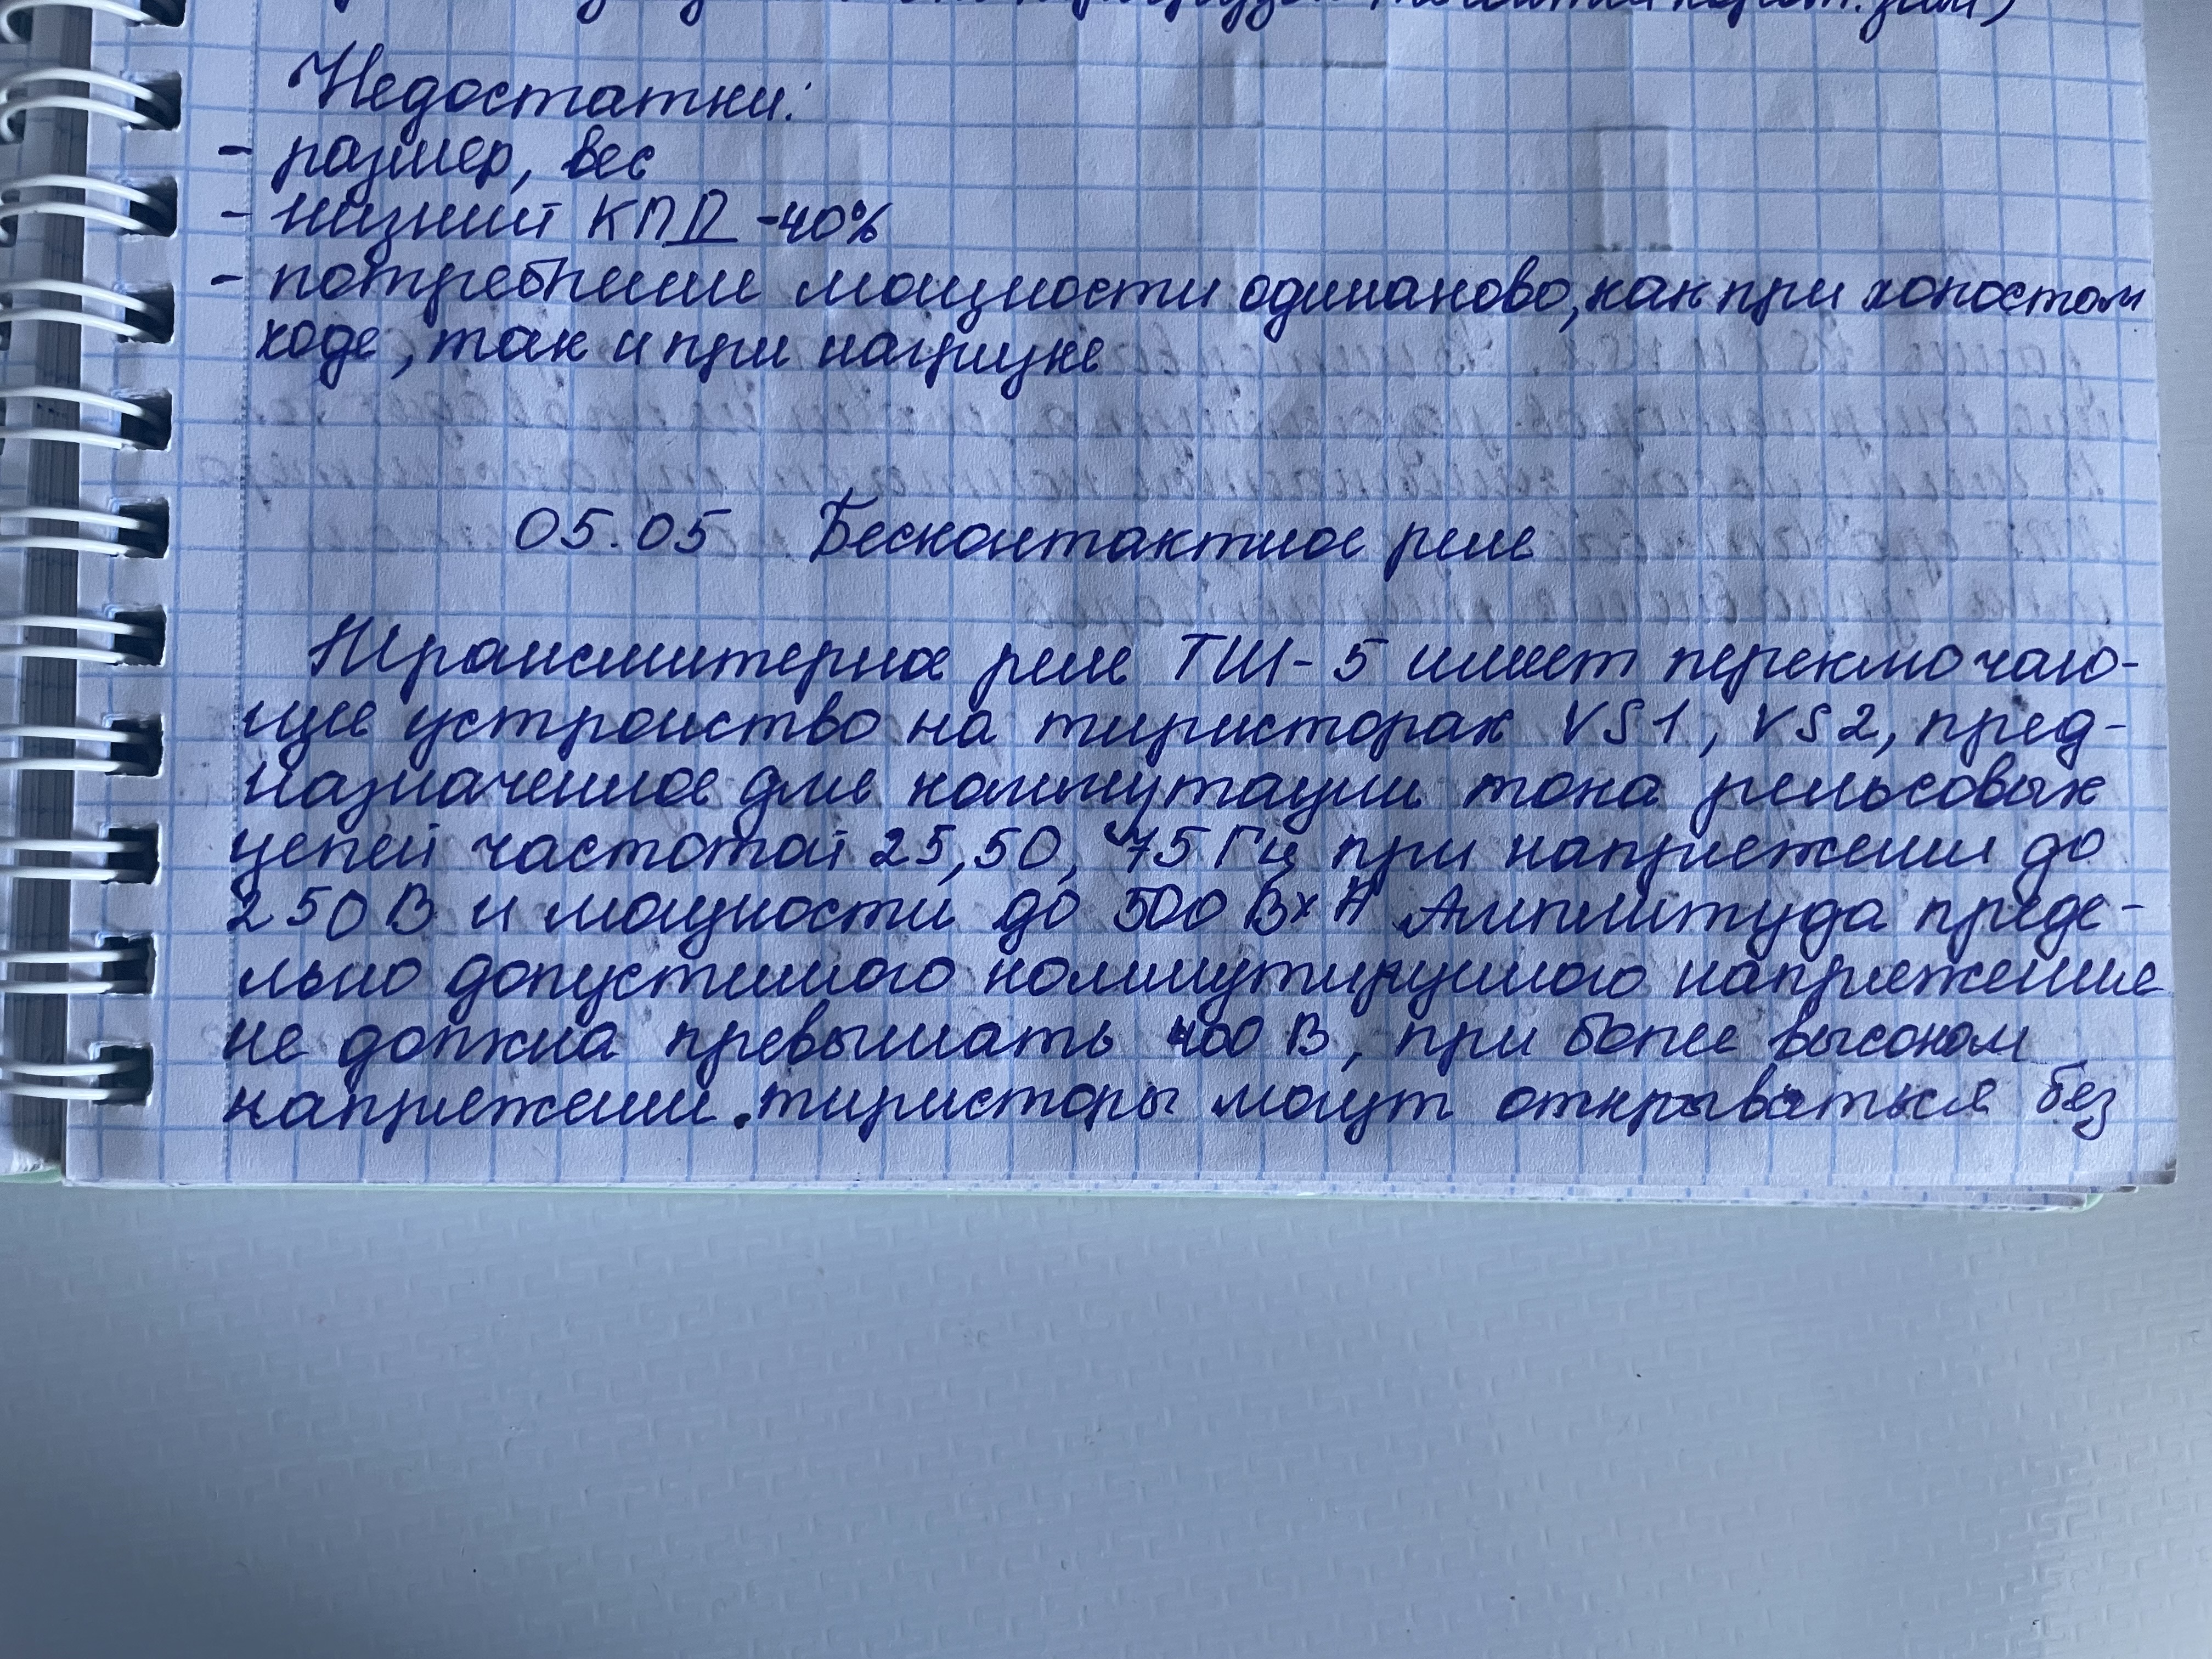 Недостатки:
- размер, вес
- низкий КПД -40%
- потребление мощности одинаково, как при холостом
ходе, так и при нагрузке
05.05 Бесконтактное реле
Трансмитерное реле ТШ-5 имеет переключаю-
щее устройство на тиристорах VS1, VS2, пред-
назначенное для коммутации тока рельсовых
цепей частотой 25, 50, 75 Гц при напряжении до
250 В и мощности до 500 Вх А Амплитуда преде-
льно допустимого коммутируемого напряжения
не должна превышать 400 В, при более высоком
напряжении. тиристоры могут открываться без